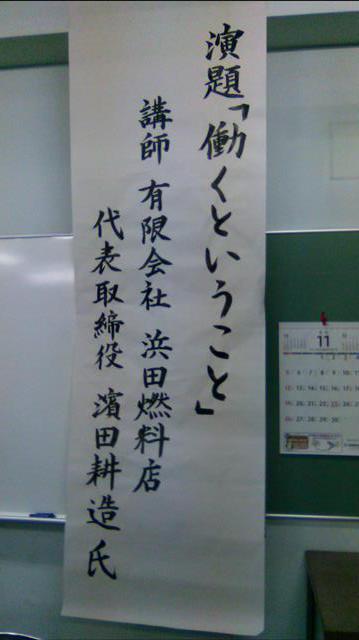 演題「働くということ」
講師 有限会社 浜田燃料店
代表取締役 濱田耕造氏
11